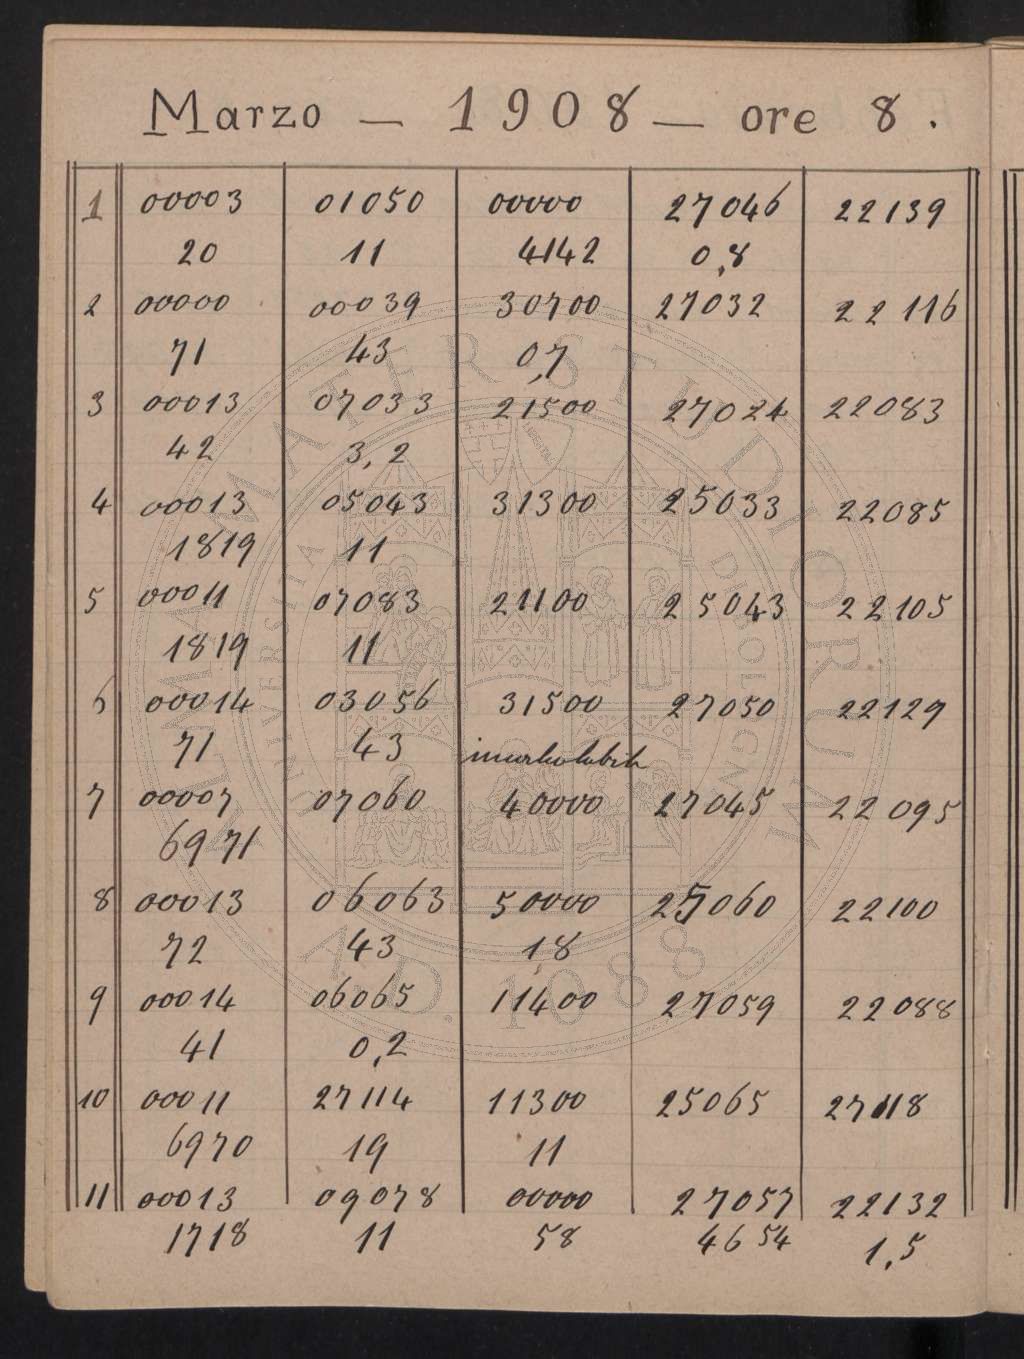 Marzo — 1908 — ore 8.
1 00003 01050 00000 27046 22139
20 11 4142 0,8
2 00000 00039 30700 27032 22116
71 43 0,7
3 00013 07033 21500 27024 22083
42 3,2
4 00013 05043 31300 25033 22085
1819 11
5 00011 07083 21100 25043 22105
1819 11
6 00014 03056 31500 27050 22129
71 43
7 00007 07060 40000 27045 22095
6971
8 00013 06063 50000 25060 22100
72 43 1,8
9 00014 06065 11400 27059 22088
41 0,2
10 00011 27114 11300 25065 27118
6970 19 11
11 00013 09078 00000 27057 22132
1718 11 58 4654 1,5
ALMA MATER STUDIORUM
UNIVERSITÀ DI BOLOGNA
A.D. 1088